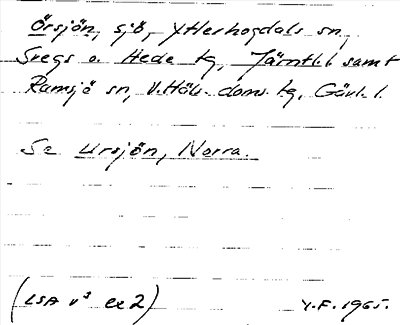 Örsjön, sjö, Ytterhogdals sn,
Svegs o. Hede tg, Jämtl. l samt
Ramsjö sn, V. Häls. doms. tg, Gävl. l.
Se Ursjön, Norra.
(LSA v³ ex 2) Y.F. 1965.